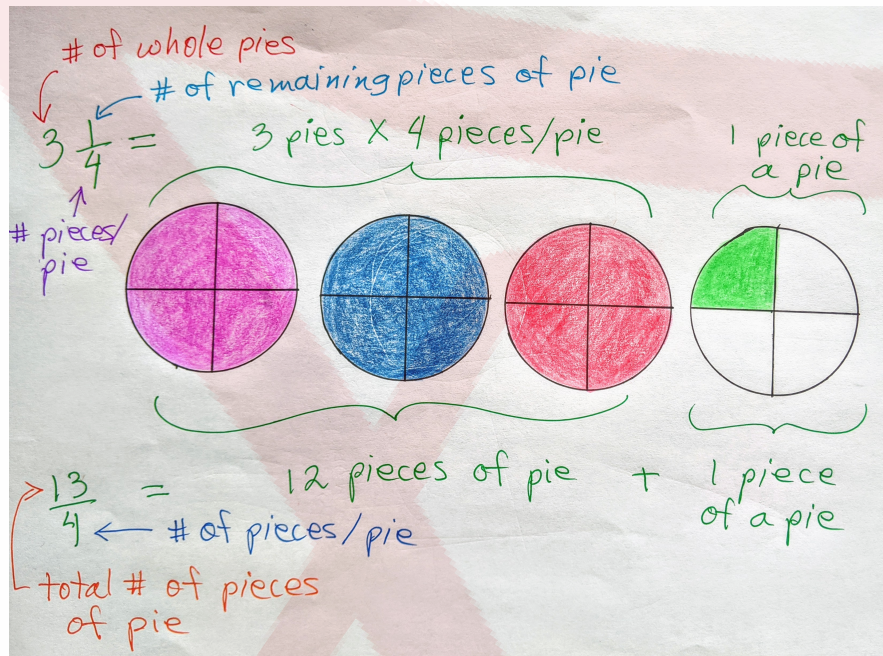 # of whole pies
# of remaining pieces of pie
3 1/4 = 3 pies X 4 pieces/pie 1 piece of
a pie
# pieces/
pie
13/4 = 12 pieces of pie + 1 piece
of a pie
# of pieces/pie
total # of pieces
of pie